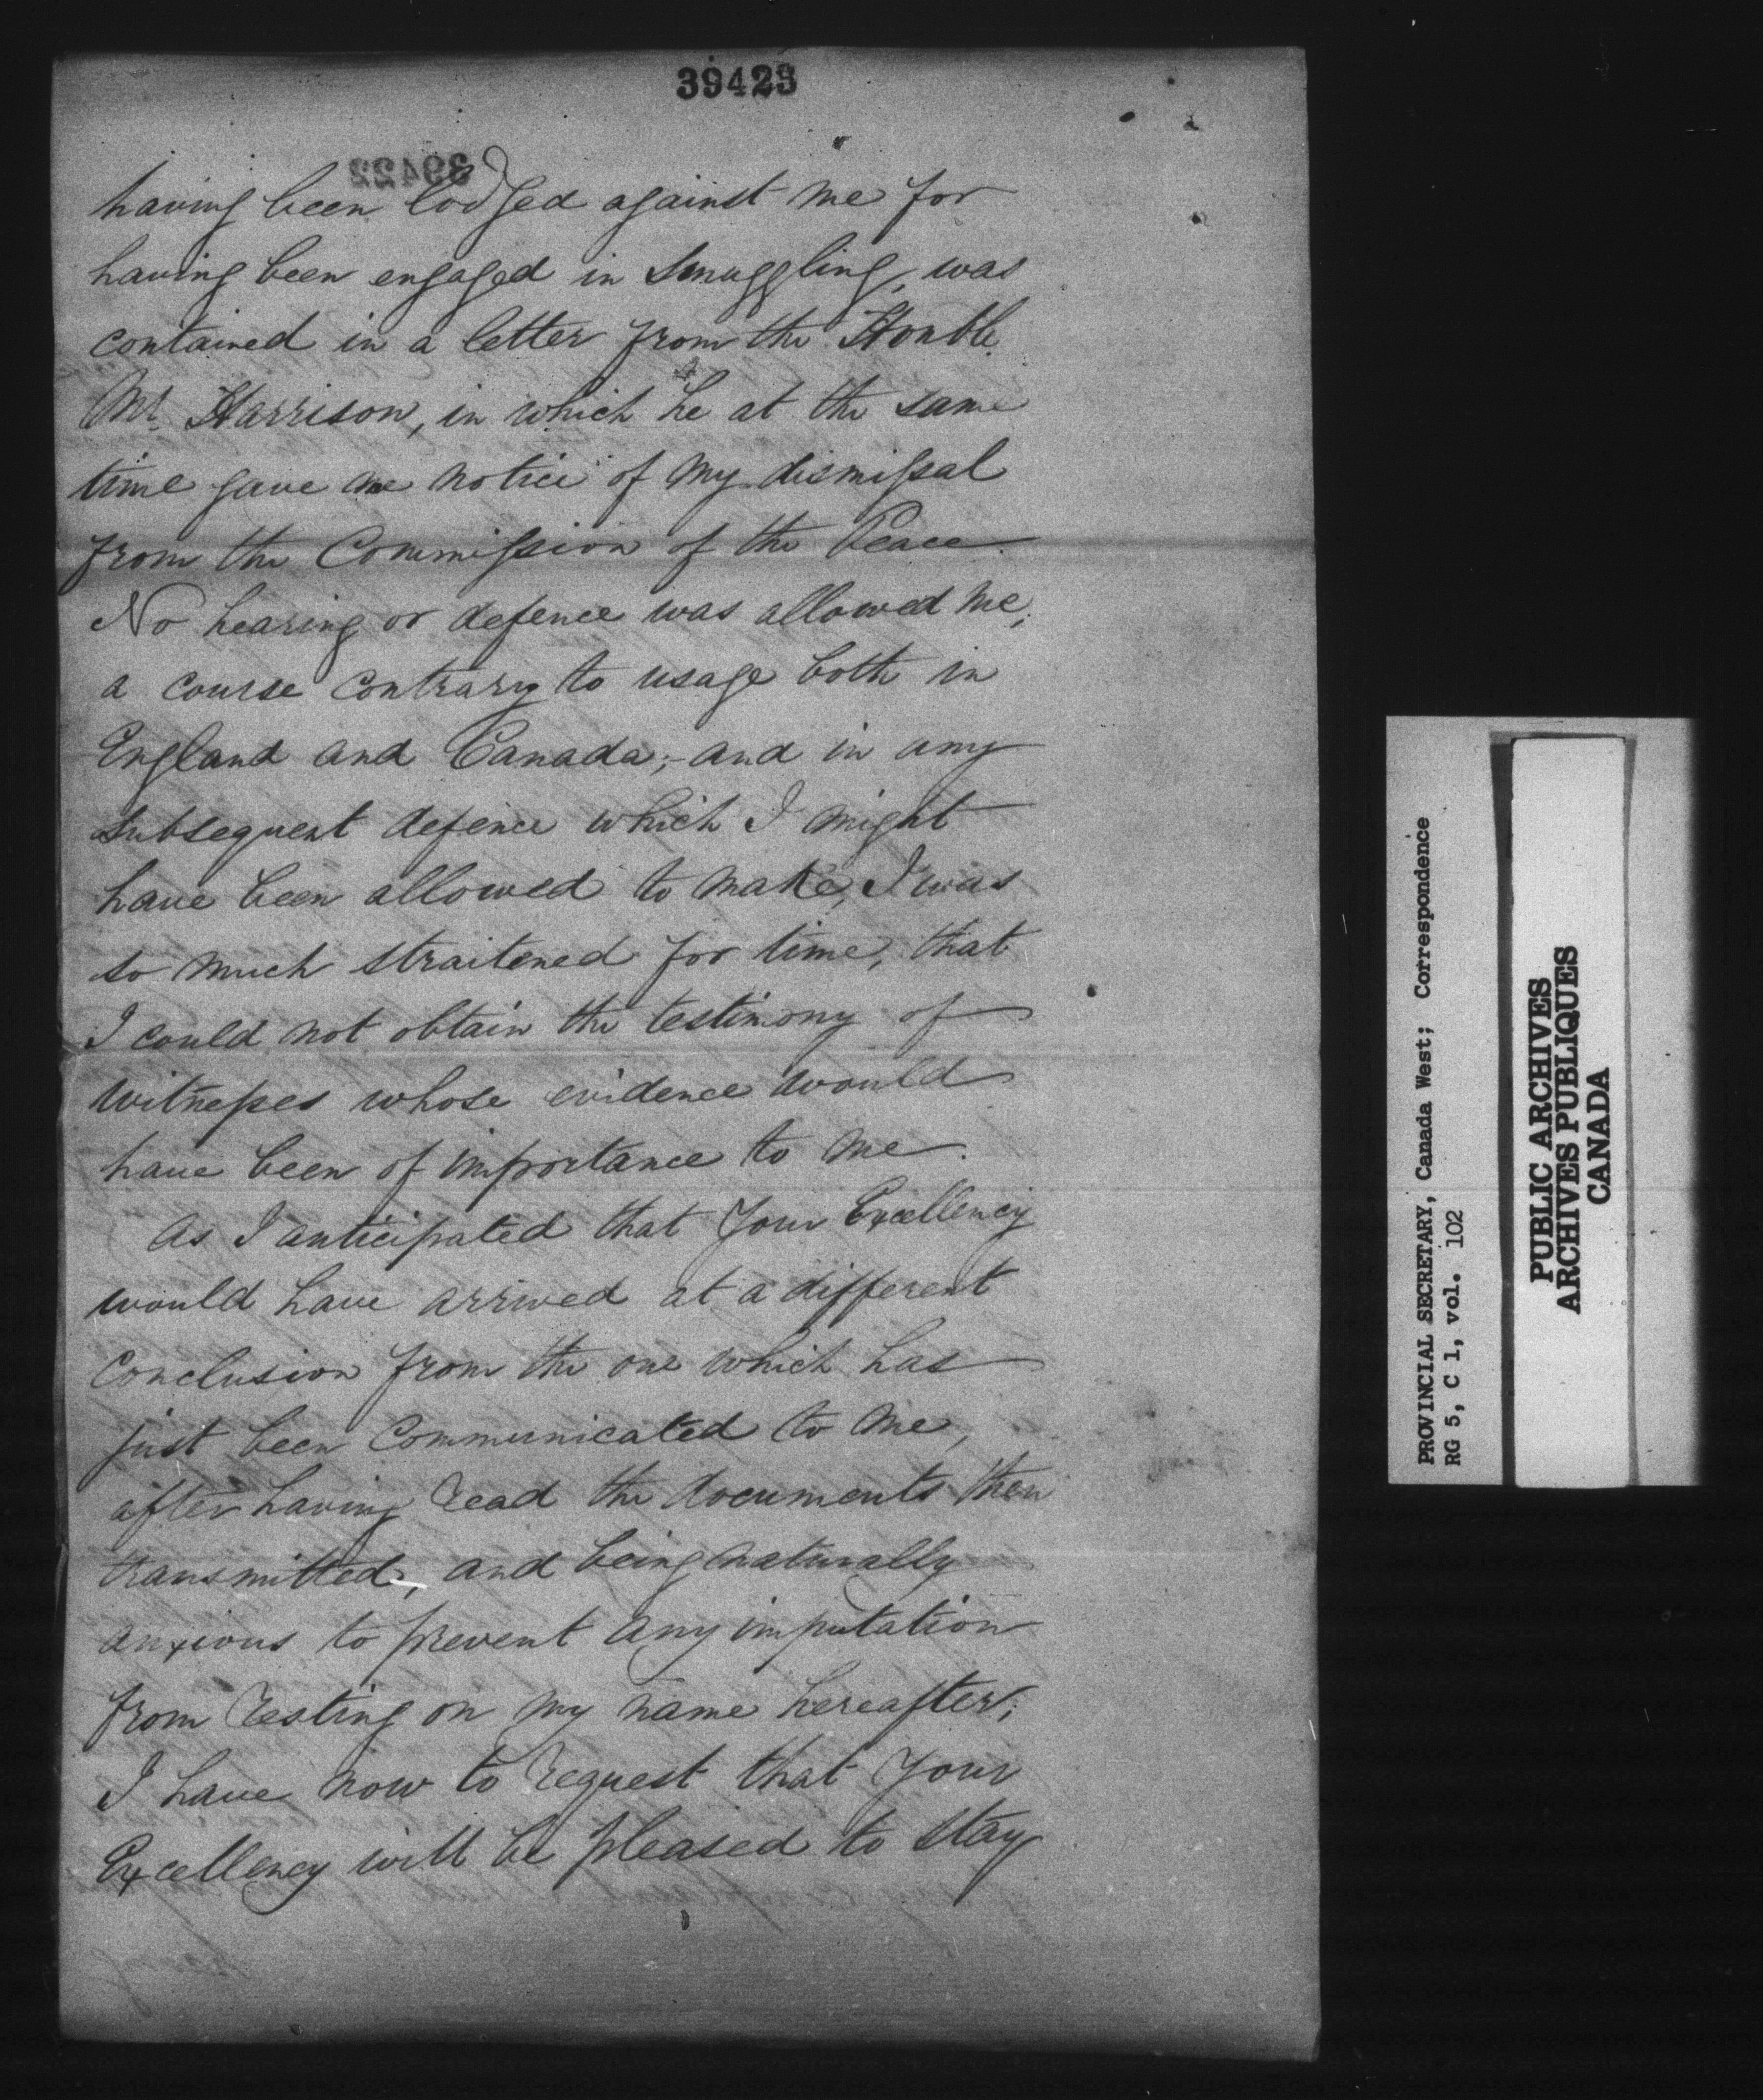 39423
39422
having been lodged against me for
having been engaged in Smuggling, was
contained in a letter from the Honble
Mr. Harrison, in which he at the same
time gave me notice of my dismissal
from the Commission of the Peace.
No hearing or defence was allowed me,
a course contrary to usage both in
England and Canada;- and in any
subsequent defence which I might
have been allowed to make, I was
so much straitened for time, that
I could not obtain the testimony of
witnesses whose evidence would
have been of importance to me.
As I anticipated that Your Excellency
would have arrived at a different
conclusion from the one which has
just been communicated to me,
after having read the documents then
transmitted, and being naturally
anxious to prevent any imputation
from resting on my name hereafter;
I have now to request that Your
Excellency will be pleased to stay
PROVINCIAL SECRETARY, Canada West; Correspondence
RG 5, C 1, vol. 102
PUBLIC ARCHIVES
ARCHIVES PUBLIQUES
CANADA